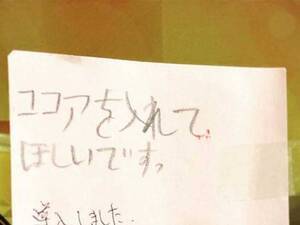 ココアを入れて
ほしいです。
導入しました.